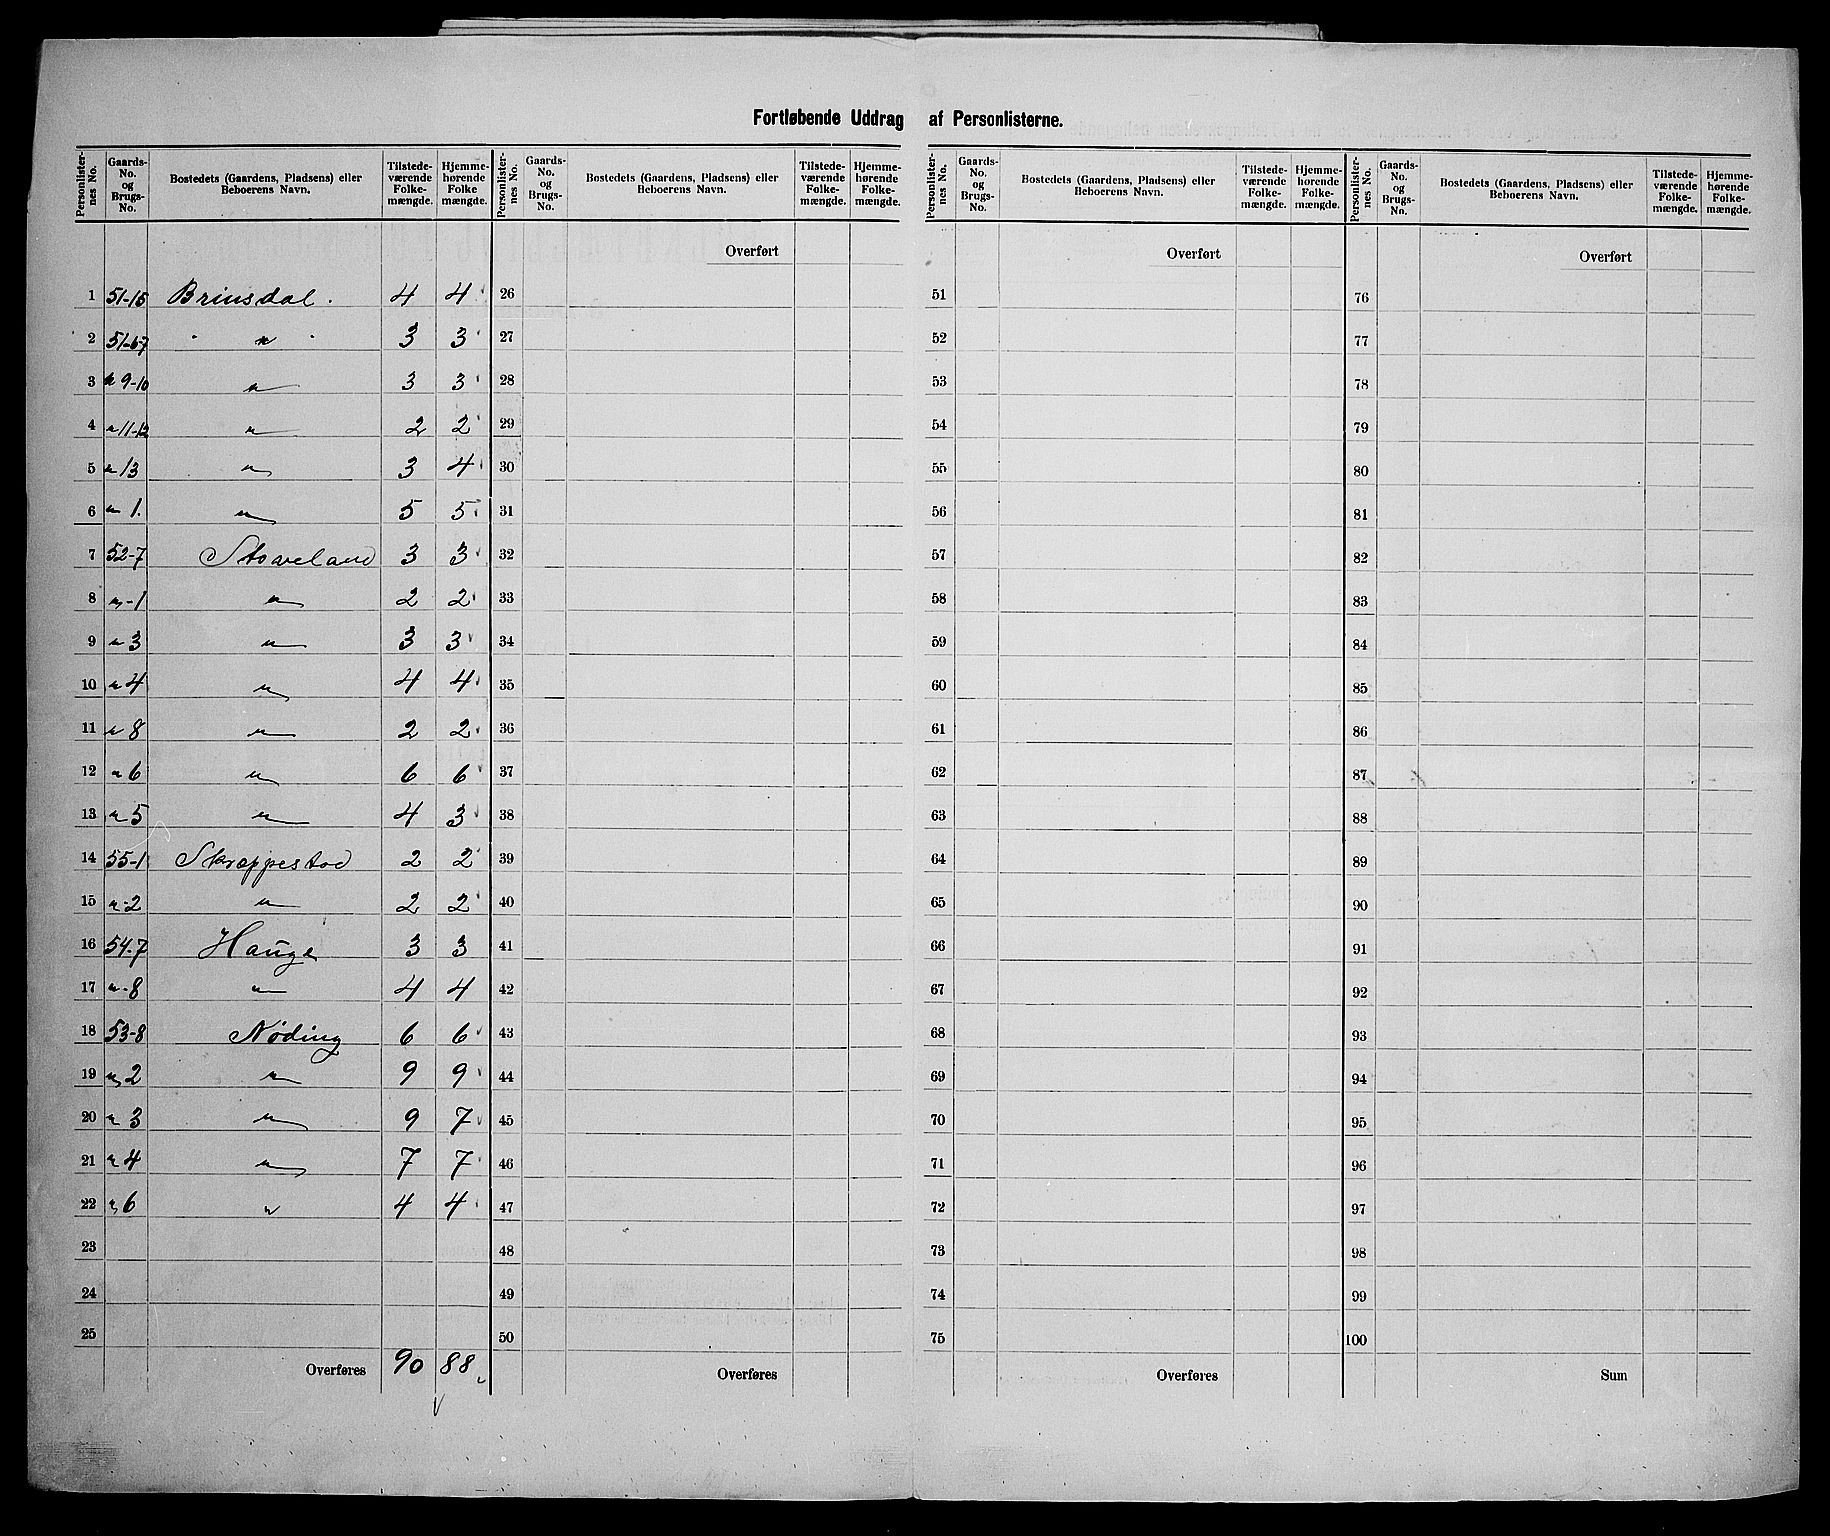 Fortløbende Uddrag af Personlisterne.
Personlister-nes No. Gaards-No. og Brugs-No. Bostedets (Gaardens, Pladsens) eller Beboerens Navn. Tilstede-værende Folke-mængde. Hjemme-hørende Folke mængde. Personlister-nes No. Gaards-No. og Brugs-No. Bostedets (Gaardens, Pladsens) eller Beboerens Navn. Tilstede-værende Folke-mængde. Hjemme-hørende Folke-mængde. Personlister-nes No. Gaards-No. og Brugs-No. Bostedets (Gaardens, Pladsens) eller Beboerens Navn. Tilstede-værende Folke-mængde. Hjemme-hørende Folke-mængde. Personlister-nes No. Gaards-No. og Brugs-No. Bostedets (Gaardens, Pladsens) eller Beboerens Navn. Tilstede-værende Folke-mængde. Hjemme-hørende Folke-mængde.
Overført Overført Overført
1 51-15 Brinsdal. 4 4 26 51 76
2 51-6-7 " 3 3 27 52 77
3 " 9-10 " 3 3 28 53 78
4 " 11-12 " 2 2 29 54 79
5 " 13 " 3 4 30 55 80
6 " 1. " 5 5 31 56 81
7 52-7 Stoveland 3 3 32 57 82
8 " -1 " 2 2 33 58 83
9 " 3 " 3 3 34 59 84
10 " 4 " 4 4 35 60 85
11 " 8 " 2 2 36 61 86
12 " 6 " 6 6 37 62 87
13 " 5 " 4 3 38 63 88
14 55-1 Skræppestad 2 2 39 64 89
15 " -2 " 2 2 40 65 90
16 54-7 Hauge 3 3 41 66 91
17 " -8 " 4 4 42 67 92
18 53-8 Nøding 6 6 43 68 93
19 " 2 " 9 9 44 69 94
20 " 3 " 9 7 45 70 95
21 " 4 " 7 7 46 71 96
22 " 6 " 4 4 47 72 97
23 48 73 98
24 49 74 99
25 50 75 100
Overføres 90 88 Overføres Overføres Sum